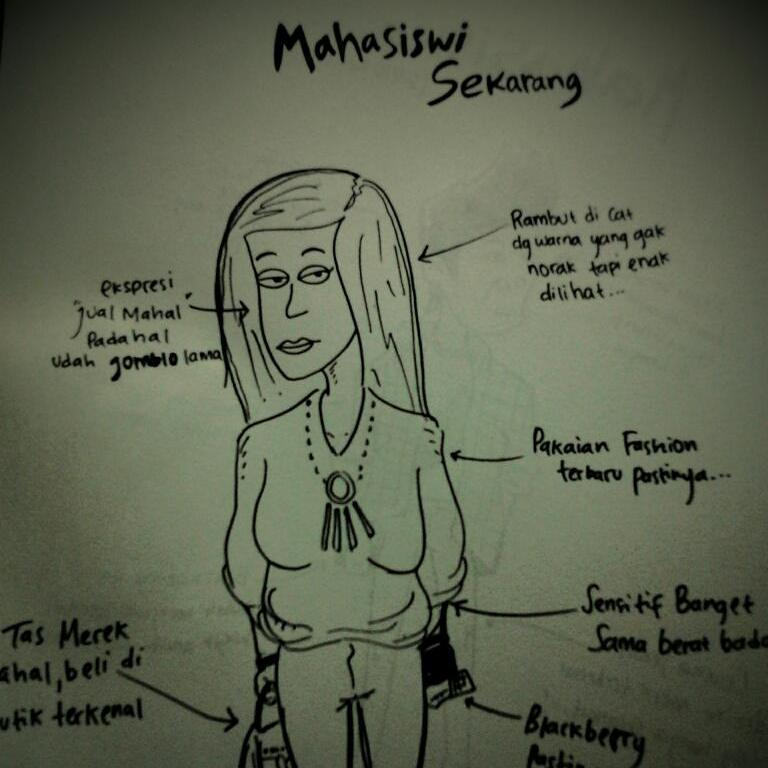 Mahasiswi
Sekarang
Rambut di cat
dg warna yang gak
norak tapi enak
dilihat...
ekspresi
"jual Mahal"
Padahal
udah gomblo lama
Pakaian Fashion
terbaru pastinya...
Sensitif Banget
Sama berat bada
Tas Merek
ahal, beli di
utik terkenal
Blackberry
Pasti